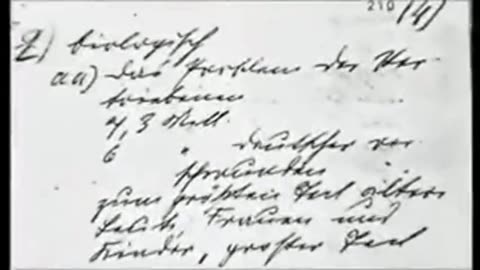 210 (4)
2) biologisch
aa) das Problem der Ver-
triebenen
7,3 Mill.
6 " deutscher ver-
schwunden
zum größten Teil ältere
Leute, Frauen und
Kinder, großer Teil